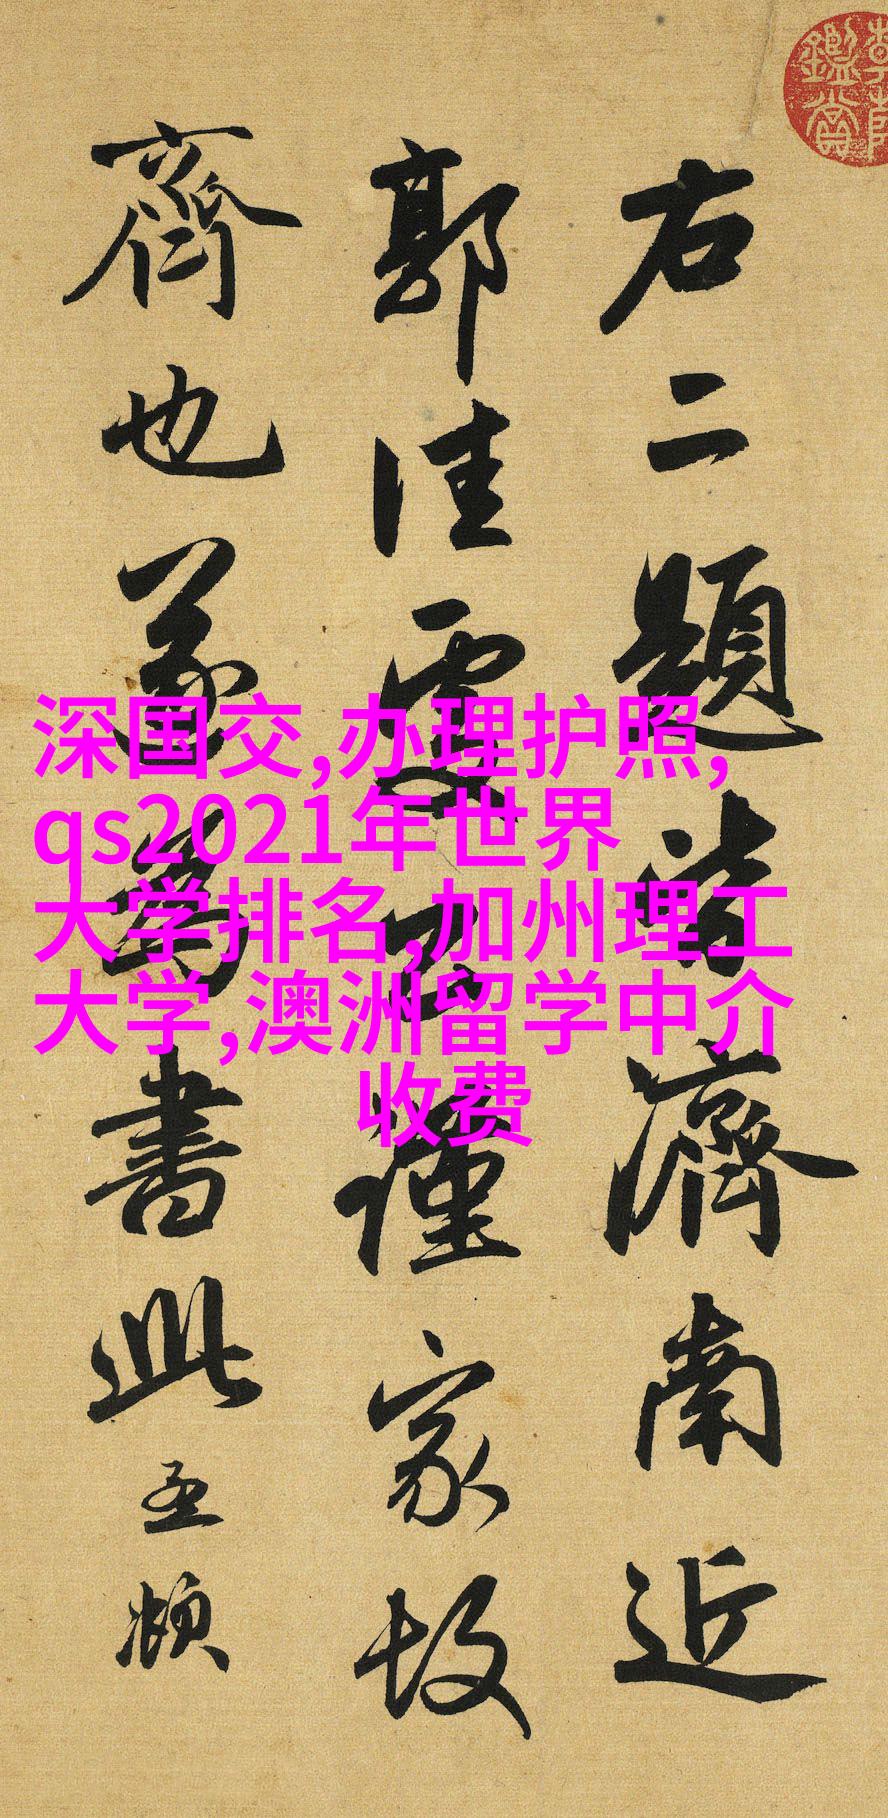 右二題皆濟南近
郭佳處公謹家故
齊也遂為書此孟頫
深国交,办理护照,
qs2021年世界
大学排名,加州理工
大学,澳洲留学中介
收费